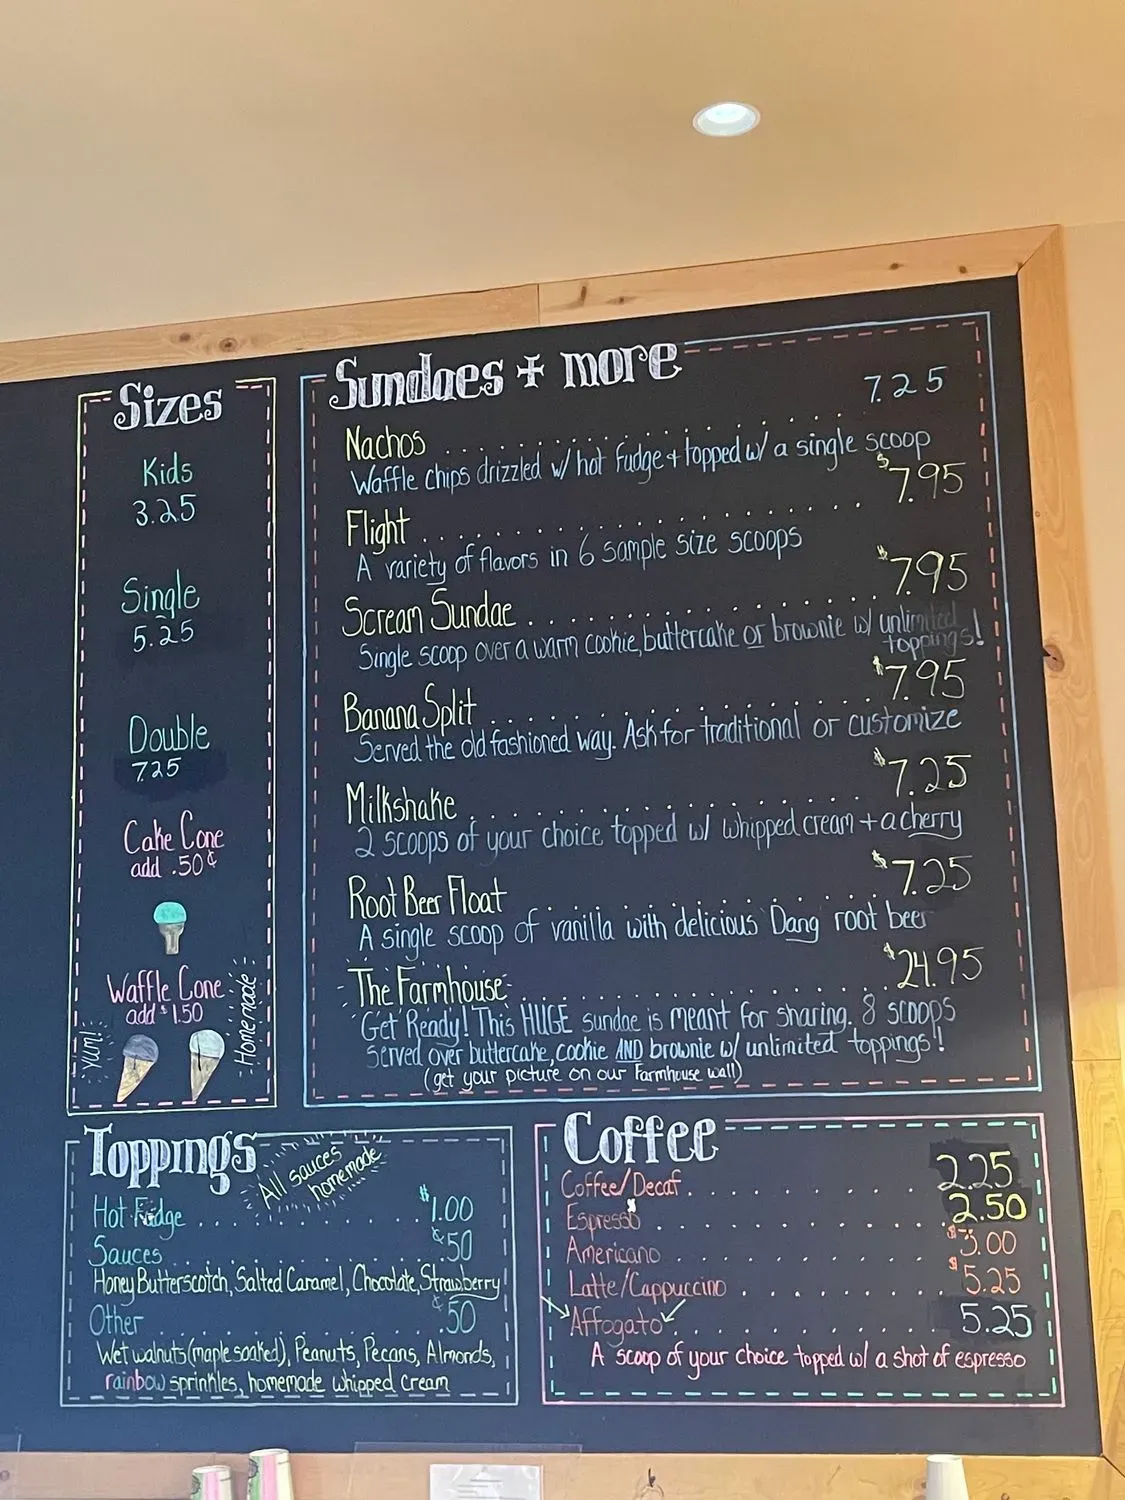 Sizes
Kids
3.25
Single
5.25
Double
7.25
Cake Cone
add .50¢
Waffle Cone
add $1.50
Yum!
Homemade
Sundaes + more
Nachos 7.25
Waffle chips drizzled w/ hot fudge + topped w/ a single scoop
Flight $7.95
A variety of flavors in 6 sample size scoops
Scream Sundae $7.95
Single scoop over a warm cookie, buttercake or brownie w/ unlimited
toppings!
Banana Split $7.95
Served the old fashioned way. Ask for traditional or customize
Milkshake $7.25
2 scoops of your choice topped w/ whipped cream + a cherry
Root Beer Float $7.25
A single scoop of vanilla with delicious Dang root beer
The Farmhouse $24.95
Get Ready! This HUGE sundae is meant for sharing. 8 scoops
served over buttercake, cookie AND brownie w/ unlimited toppings!
(get your picture on our Farmhouse wall)
Toppings
All sauces
homemade
Hot Fudge $1.00
Sauces ¢50
Honey Butterscotch, Salted Caramel, Chocolate, Strawberry
Other ¢.50
Wet walnuts (maple soaked), Peanuts, Pecans, Almonds,
rainbow sprinkles, homemade whipped cream
Coffee
Coffee/Decaf 2.25
Espresso 2.50
Americano $3.00
Latte/Cappuccino $5.25
Affogato 5.25
A scoop of your choice topped w/ a shot of espresso